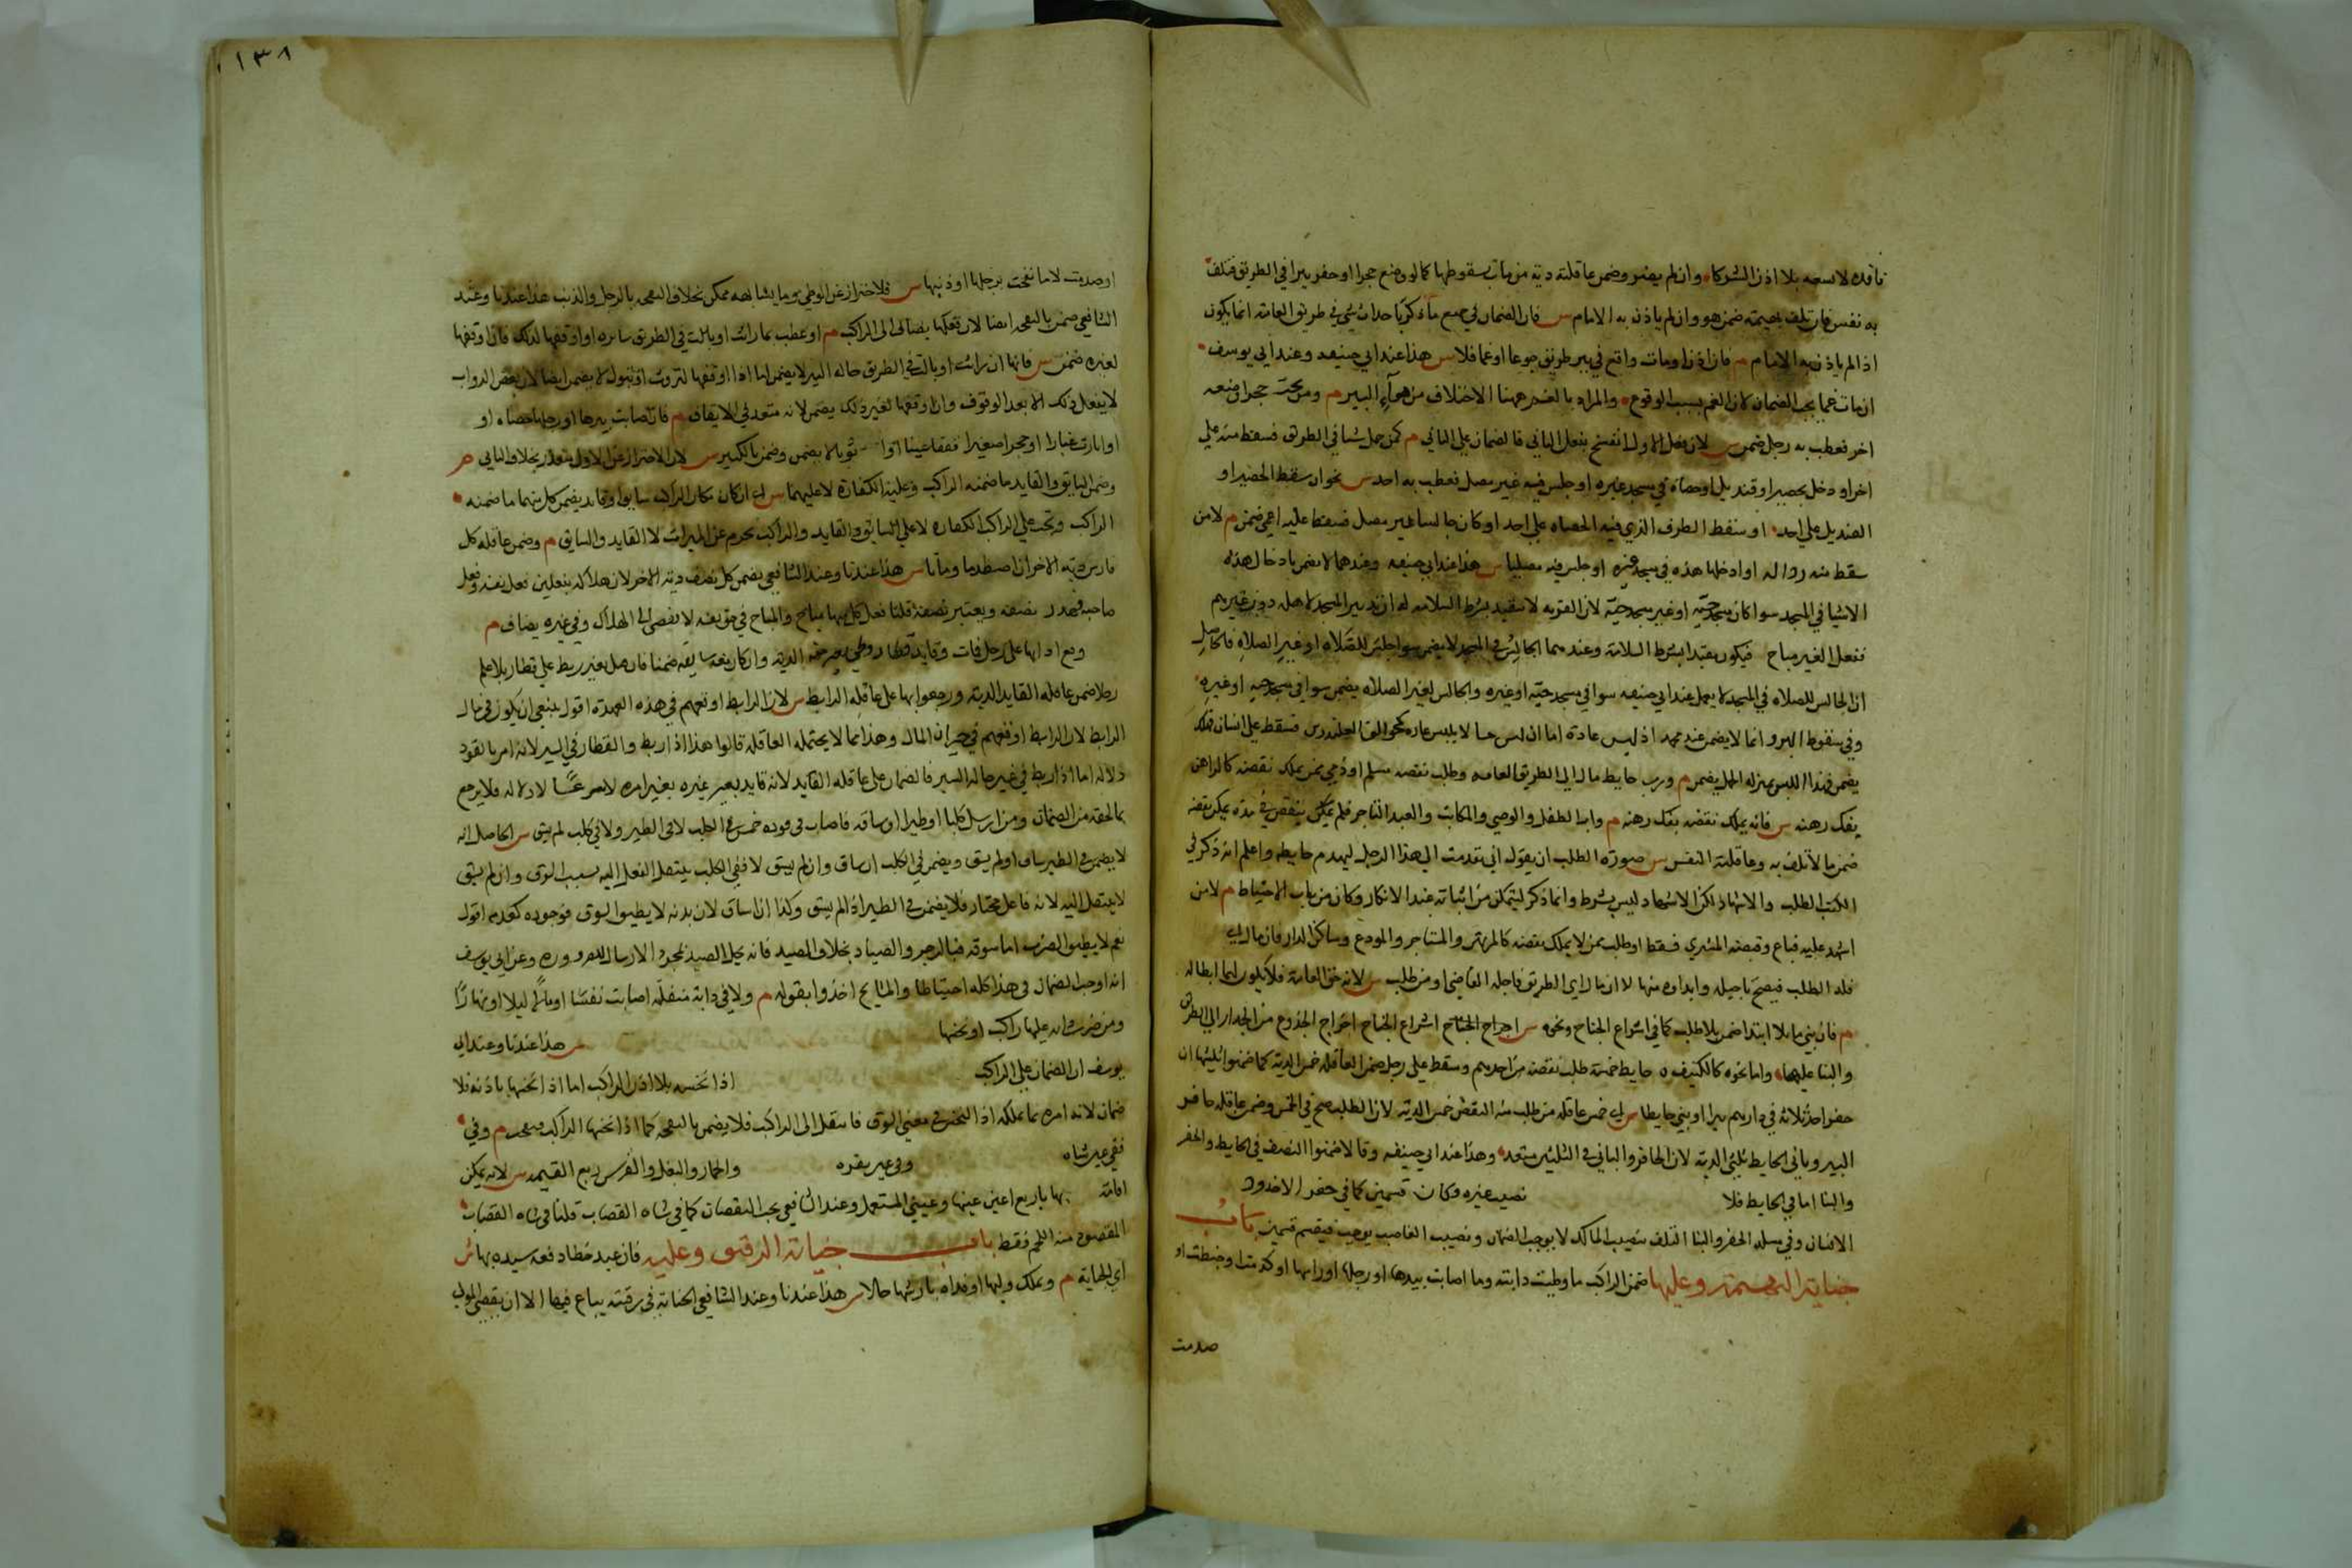 نافذه لا يسعه بلا اذن الشركا وان لم يضر وضمن عاقلته دية من مات بسقوطها كما لو وضع حجرا او حفر بيرا في الطريق فتلف
به نفس فان تلف بهيمة ضمن هو وان لم ياذن به الامام س فان الضمان في جميع ما ذكر باحداث شي في طريق العامة انما يكون
اذا لم ياذن به الامام م فان اذن او مات واقع في بير طريق جوعا او غما فلا س هذا عند ابي حنيفه وعند ابي يوسف
ان مات غما يجب الضمان لان الغم بسبب الوقوع والمراد بالغم ههنا الاختناق من هوآء البير م ومن نحى حجرا وضعه
اخر فعطب به رجل ضمن س لان فعل الاول انفسخ بفعل الثاني فالضمان على الثاني م كمن حمل شيا في الطريق فسقط منه على
اخر او دخل بحصير او قنديل او حصاة في مسجد غيره او جلس فيه غير مصل فعطب به احد س نحو ان سقط الحصير او
القنديل على احد او سقط الظرف الذي فيه الحصاه على احد او كان جالسا غير مصل فسقط عليه اعمى ضمن م لا من
سقط منه رداله او ادخل هذه في مسجد حيه او جلس فيه مصليا س هذا عند ابي حنيفه وعندهما لا يضمن بادخال هذه
الاشيا في المسجد سوا كان مسجد حيه او غير مسجد حيه لان القربه لا تتقيد بشرط السلامه له ان تدبير المسجد لاهله دون غيرهم
ففعل الغير مباح فيكون مقيدا بشرط السلامة وعندهما الجالس في المسجد لا يضمن سوا جلس للصلاه او غير الصلاه فالحاصل
ان الجالس للصلاه في المسجد لا يضمن عند ابي حنيفه سوا في مسجد حيه او غيره والجالس لغير الصلاه يضمن سوا في مسجد حيه او غيره
وفي سقوط الردا انما لا يضمن عند محمد اذ لبس عادة اما ان لبس ما لا يلبس عاده فسقط على انسان فهلك
يضمن فهذا اللبس بمنزله الحمل يضمن م ورب حايط مال الى الطريق العامه وطلب نقضه مسلم او ذمي ممن يملك نقضه كالراهن
بفك رهنه س فانه يملك نقضه بفك رهنه م واب الطفل والوصي والمكاتب والعبد التاجر فلم ينقض في مدة يمكن نقضه
ضمن مالا تلف به وعاقلته النفس س صورة الطلب ان يقول اني تقدمت الى هذا الرجل ليهدم حايطه واعلم انه ذكر في
الكتب الطلب والاشهاد لكن الاشهاد ليس بشرط وانما ذكر ليتمكن من اثباته عند الانكار وكان من باب الاحتياط م لا من
اشهد عليه فباع وقبضه المشتري فسقط او طلب ممن لا يملك نقضه كالمرتهن والمستاجر والمودع وساكن الدار فان مال الى
فله الطلب فيصح تاجيله وابراوه منها لا ان مال الى الطريق فاجله القاضي او من طلب س لانه حق العامة فلا يكون لهما ابطاله
م فان بنى مايلا ابتدا ضمن بلا طلب كما في اشراع الجناح ونحوه س اخراج الجناح اشراع الجناح اخراج الجذوع من الجدار الى الطريق
والبنا عليها واما نحوه كالكنيف ه حايط خمسة طلب نقضه من احدهم وسقط على رجل ضمن العاقله خمس الدية كما ضمنوا ثلثيها ان
حفر احد ثلاثه في دارهم بيرا او بنى حايطا س اى ضمن عاقله من طلب منه النقض خمس الدية لان الطلب صح في الخمس وضمن عاقله حافر
البير وباني الحايط ثلثي الدية لان الحافر والباني في الثلثين متعد وهذا عند ابي حنيفه وقالا ضمنوا النصف في الحايط والحفر
والبنا اما في الحايط فلا نصيب غيره وكان قسمين كما في حفر الاخدود
الانسان وفي مسله الحفر والبنا التلف بنصيب المالك لا يوجب الضمان ونصيب الغاصب يوجب فيقسم قسمين باب
جناية البهيمة وعليها ضمن الراكب ما وطيت دابته وما اصابت بيدها او رجلها او راسها او كدمت او خبطت او
صدمت
١٣٨
او صدمت لا ما نفحت برجلها او ذنبها س فالاحتراز عن الوطي وما يشابهه ممكن بخلاف النفحه بالرجل والذنب هذا عندنا وعند
الشافعي يضمن بالنفحه ايضا لان فعلها يضاف الى الراكب م او عطب بما راثت او بالت في الطريق سايره او اوقفها لذلك فان اوقفها
لغيره ضمن س فانها ان راثت او بالت في الطريق حاله السير لا يضمن اما اذا اوقفها لتروث او تبول لا يضمن ايضا لان بعض الدواب
لا يفعل ذلك الا بعد الوقوف وان اوقفها لغير ذلك يضمن لانه متعد في الايقاف م فان اصابت بيدها او رجلها حصاه او
او اثارت غبارا او حجرا صغيرا ففقا عينا او ثوبا لا يضمن وضمن بالكبير س لان الاحتراز عن الاول متعذر بخلاف الثاني م
وضمن السايق والقايد ما ضمنه الراكب وعليه الكفارة لا عليهما س اى ان كان مكان الراكب سايق او قايد يضمن كل منهما ما ضمنه
الراكب ويجب على الراكب الكفاره لا على السايق والقايد والراكب يحرم عن الميراث لا القايد والسايق م وضمن عاقله كل
فارس دية الاخر ان اصطدما وماتا س هذا عندنا وعند الشافعي يضمن كل نصف دية الاخر لان هلاكه بفعلين فعل نفسه وفعل
صاحبه فيهدر نصفه ويعتبر نصفه قلنا فعل كل منهما مباح والمباح في حق نفسه لا يضاف الى الهلاك وفي غيره يضاف م
وقع اداتها على رجل فمات وقايد قطار وطي بعير منه الدية وان كان معه سايق ضمنا فان قتل بعير ربط على قطار بلا علم
رجلا ضمن عاقله القايد الدية ورجعوا بها على عاقله الرابط س لان الرابط اوقعهم في هذه العهدة اقول ينبغي ان يكون في مال
الرابط لان الرابط اوقعهم في خسران المال وهذا مما لا يحتمله العاقله قالوا هذا اذا ربط والقطار في السير لانه امر بالقود
دلاله اما اذا ربط في غير حاله السير فالضمان على عاقله القايد لانه قايد بعير غيره بغير امره لا صريحا ولا دلاله فلا يرجع
بما لحقه من الضمان ومن ارسل كلبا او طيرا او ساقه فاصاب في فوره ضمن في الكلب لا في الطير ولا في كلب لم يسق س الحاصل انه
لا يضمن في الطير ساق او لم يسق ويضمن في الكلب ان ساق وان لم يسق لا ففي الكلب ينتقل الفعل اليه بسبب السوق وان لم يسق
لا ينتقل اليه لانه فاعل مختار فلا يضمن في الطير اذا لم يسق وكذا ان ساق لان بدنه لا يطيق السوق فوجوده كعدمه اقول
نعم لا يطيق الضرب اما سوقه فبالزجر والصياد بخلاف الصيد فانه يحل الصيد بمجرد الارسال للضروره وعن ابي يوسف
انه اوجب الضمان في هذا كله احتياطا والمشايخ اخذوا بقوله م ولا في دابة منفلته اصابت نفسا او مالا ليلا او نهارا
ومن ضرب دابه عليها راكب او نخسها س هذا عندنا وعند ابي
يوسف ان الضمان على الراكب اذا نخس بلا اذن الراكب اما اذا نخسها باذنه فلا
ضمان لانه امره بما يملكه اذ النخس في معنى السوق فانتقل الى الراكب فلا يضمن بالنفحه كما اذا نخسها الراكب فنفحت م وفي
فقي عين شاه وفي عين بقره والحمار والبغل والفرس ربع القيمه س لانه يمكن
اقامة بها باربع اعين عينيها وعيني المستعمل وعند الشافعي يجب النقصان كما في شاه القصاب قلنا في شاه القصاب
المقصود منه اللحم فقط باب جناية الرقيق وعليه فان عبد خطا دفعه سيده بها س
اي الجناية م ويملك وليها او فداه بارشها حالا س هذا عندنا وعند الشافعي الجناية في رقبته يباع فيها الا ان يقضي المولى